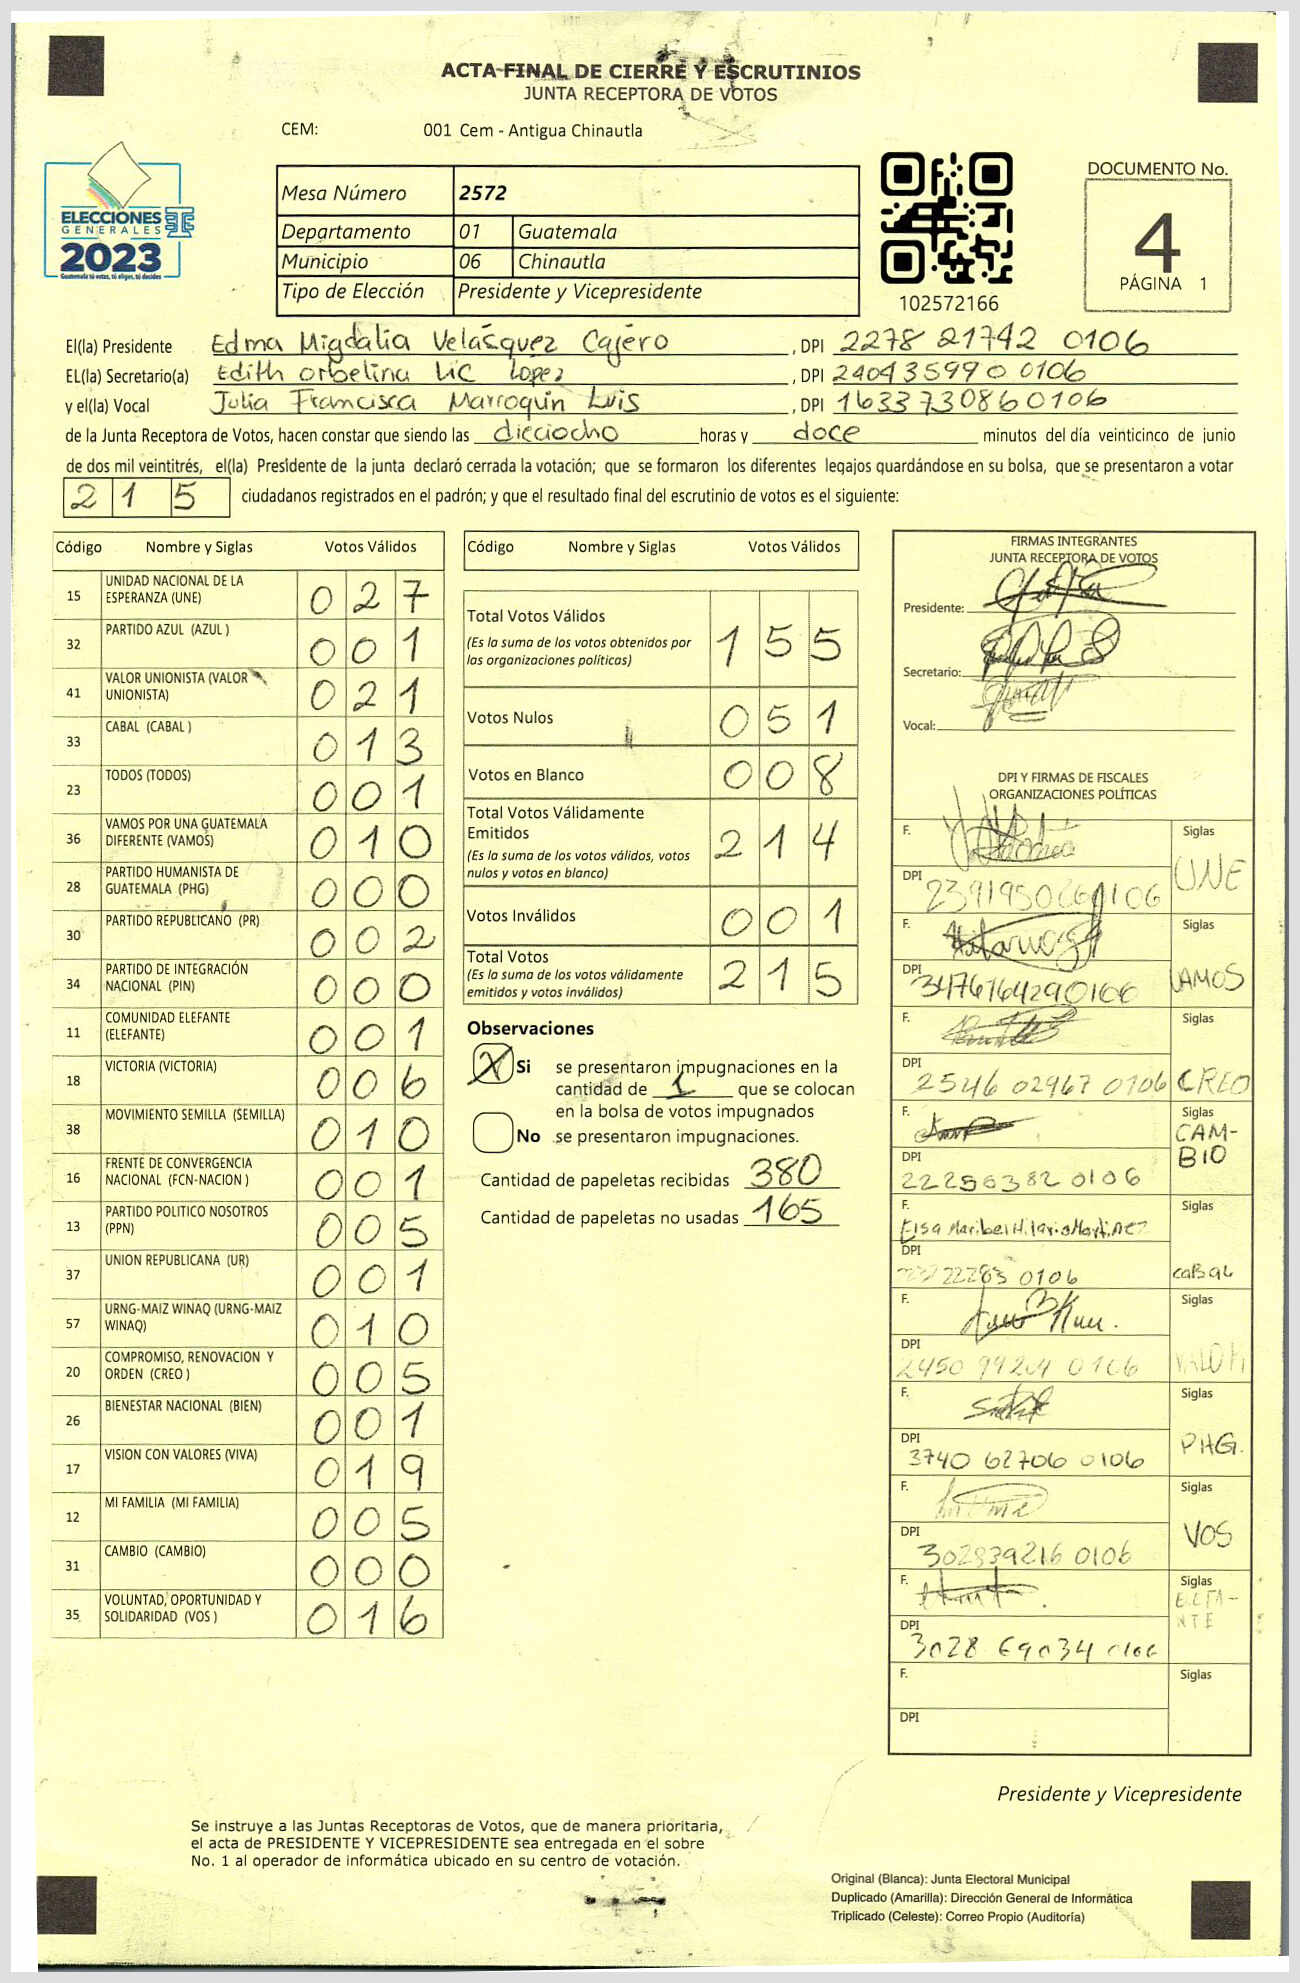 ACTA FINAL DE CIERRE Y ESCRUTINIOS
JUNTA RECEPTORA DE VOTOS
CEM: 001 Cem - Antigua Chinautla
ELECCIONES
GENERALES
2023
Guatemala tú votas, tú eliges, tú decides
Mesa Número 2572
Departamento 01 Guatemala
Municipio 06 Chinautla
Tipo de Elección Presidente y Vicepresidente
102572166
DOCUMENTO No.
4
PÁGINA 1
El(la) Presidente Edma Migdalia Velásquez Cajero, DPI 2278 21742 0106
EL(la) Secretario(a) Edith orbelina Lic Lopez, DPI 2404359900106
y el(la) Vocal Julia Francisca Marroquin Luis, DPI 1633730860106
de la Junta Receptora de Votos, hacen constar que siendo las dieciocho horas y doce minutos del día veinticinco de junio
de dos mil veintitrés, el(la) Presidente de la junta declaró cerrada la votación; que se formaron los diferentes legajos guardándose en su bolsa, que se presentaron a votar
215 ciudadanos registrados en el padrón; y que el resultado final del escrutinio de votos es el siguiente:
Código Nombre y Siglas Votos Válidos
15 UNIDAD NACIONAL DE LA
ESPERANZA (UNE) 027
32 PARTIDO AZUL (AZUL ) 001
41 VALOR UNIONISTA (VALOR
UNIONISTA) 021
33 CABAL (CABAL ) 013
23 TODOS (TODOS) 001
36 VAMOS POR UNA GUATEMALA
DIFERENTE (VAMOS) 010
28 PARTIDO HUMANISTA DE
GUATEMALA (PHG) 000
30 PARTIDO REPUBLICANO (PR) 002
34 PARTIDO DE INTEGRACIÓN
NACIONAL (PIN) 000
11 COMUNIDAD ELEFANTE
(ELEFANTE) 001
18 VICTORIA (VICTORIA) 006
38 MOVIMIENTO SEMILLA (SEMILLA) 010
16 FRENTE DE CONVERGENCIA
NACIONAL (FCN-NACION ) 001
13 PARTIDO POLITICO NOSOTROS
(PPN) 005
37 UNION REPUBLICANA (UR) 001
57 URNG-MAIZ WINAQ (URNG-MAIZ
WINAQ) 010
20 COMPROMISO, RENOVACION Y
ORDEN (CREO ) 005
26 BIENESTAR NACIONAL (BIEN) 001
17 VISION CON VALORES (VIVA) 019
12 MI FAMILIA (MI FAMILIA) 005
31 CAMBIO (CAMBIO) 000
35 VOLUNTAD, OPORTUNIDAD Y
SOLIDARIDAD (VOS ) 016
Código Nombre y Siglas Votos Válidos
Total Votos Válidos 155
(Es la suma de los votos obtenidos por
las organizaciones políticas)
Votos Nulos 051
Votos en Blanco 008
Total Votos Válidamente
Emitidos 214
(Es la suma de los votos válidos, votos
nulos y votos en blanco)
Votos Inválidos 001
Total Votos 215
(Es la suma de los votos válidamente
emitidos y votos inválidos)
Observaciones
X Si se presentaron impugnaciones en la
cantidad de 1 que se colocan
en la bolsa de votos impugnados
No se presentaron impugnaciones.
Cantidad de papeletas recibidas 380
Cantidad de papeletas no usadas 165
FIRMAS INTEGRANTES
JUNTA RECEPTORA DE VOTOS
Presidente:
Secretario:
Vocal:
DPI Y FIRMAS DE FISCALES
ORGANIZACIONES POLÍTICAS
F. Siglas
UNE
DPI 2391950260106
F. Siglas
VAMOS
DPI 3476764290106
F. Siglas
CREO
DPI 2546 02967 0106
F. Siglas
CAM-
BIO
DPI 222563820106
F. Elsa Maribel Hilario Martinez Siglas
CABAL
DPI 0106
F. Siglas
VALOR
DPI 2450 99204 0106
F. Siglas
PHG.
DPI 3740 62706 0106
F. Siglas
VOS
DPI 302839216 0106
F. Siglas
DPI 3028 69034 0106
F. Siglas
DPI
Presidente y Vicepresidente
Se instruye a las Juntas Receptoras de Votos, que de manera prioritaria,
el acta de PRESIDENTE Y VICEPRESIDENTE sea entregada en el sobre
No. 1 al operador de informática ubicado en su centro de votación.
Original (Blanca): Junta Electoral Municipal
Duplicado (Amarilla): Dirección General de Informática
Triplicado (Celeste): Correo Propio (Auditoría)